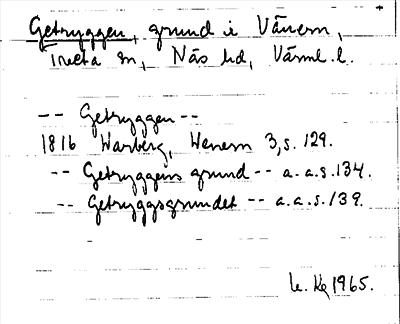 Getryggen, grund i Vänern,
Tveta sn, Näs hd, Värml. l.
-- Getryggen --
1816 Warberg, Wenern 3, s. 129.
-- Getryggens grund -- a.a.s. 134.
-- Getryggsgrundet -- a.a.s. 139.
1965.